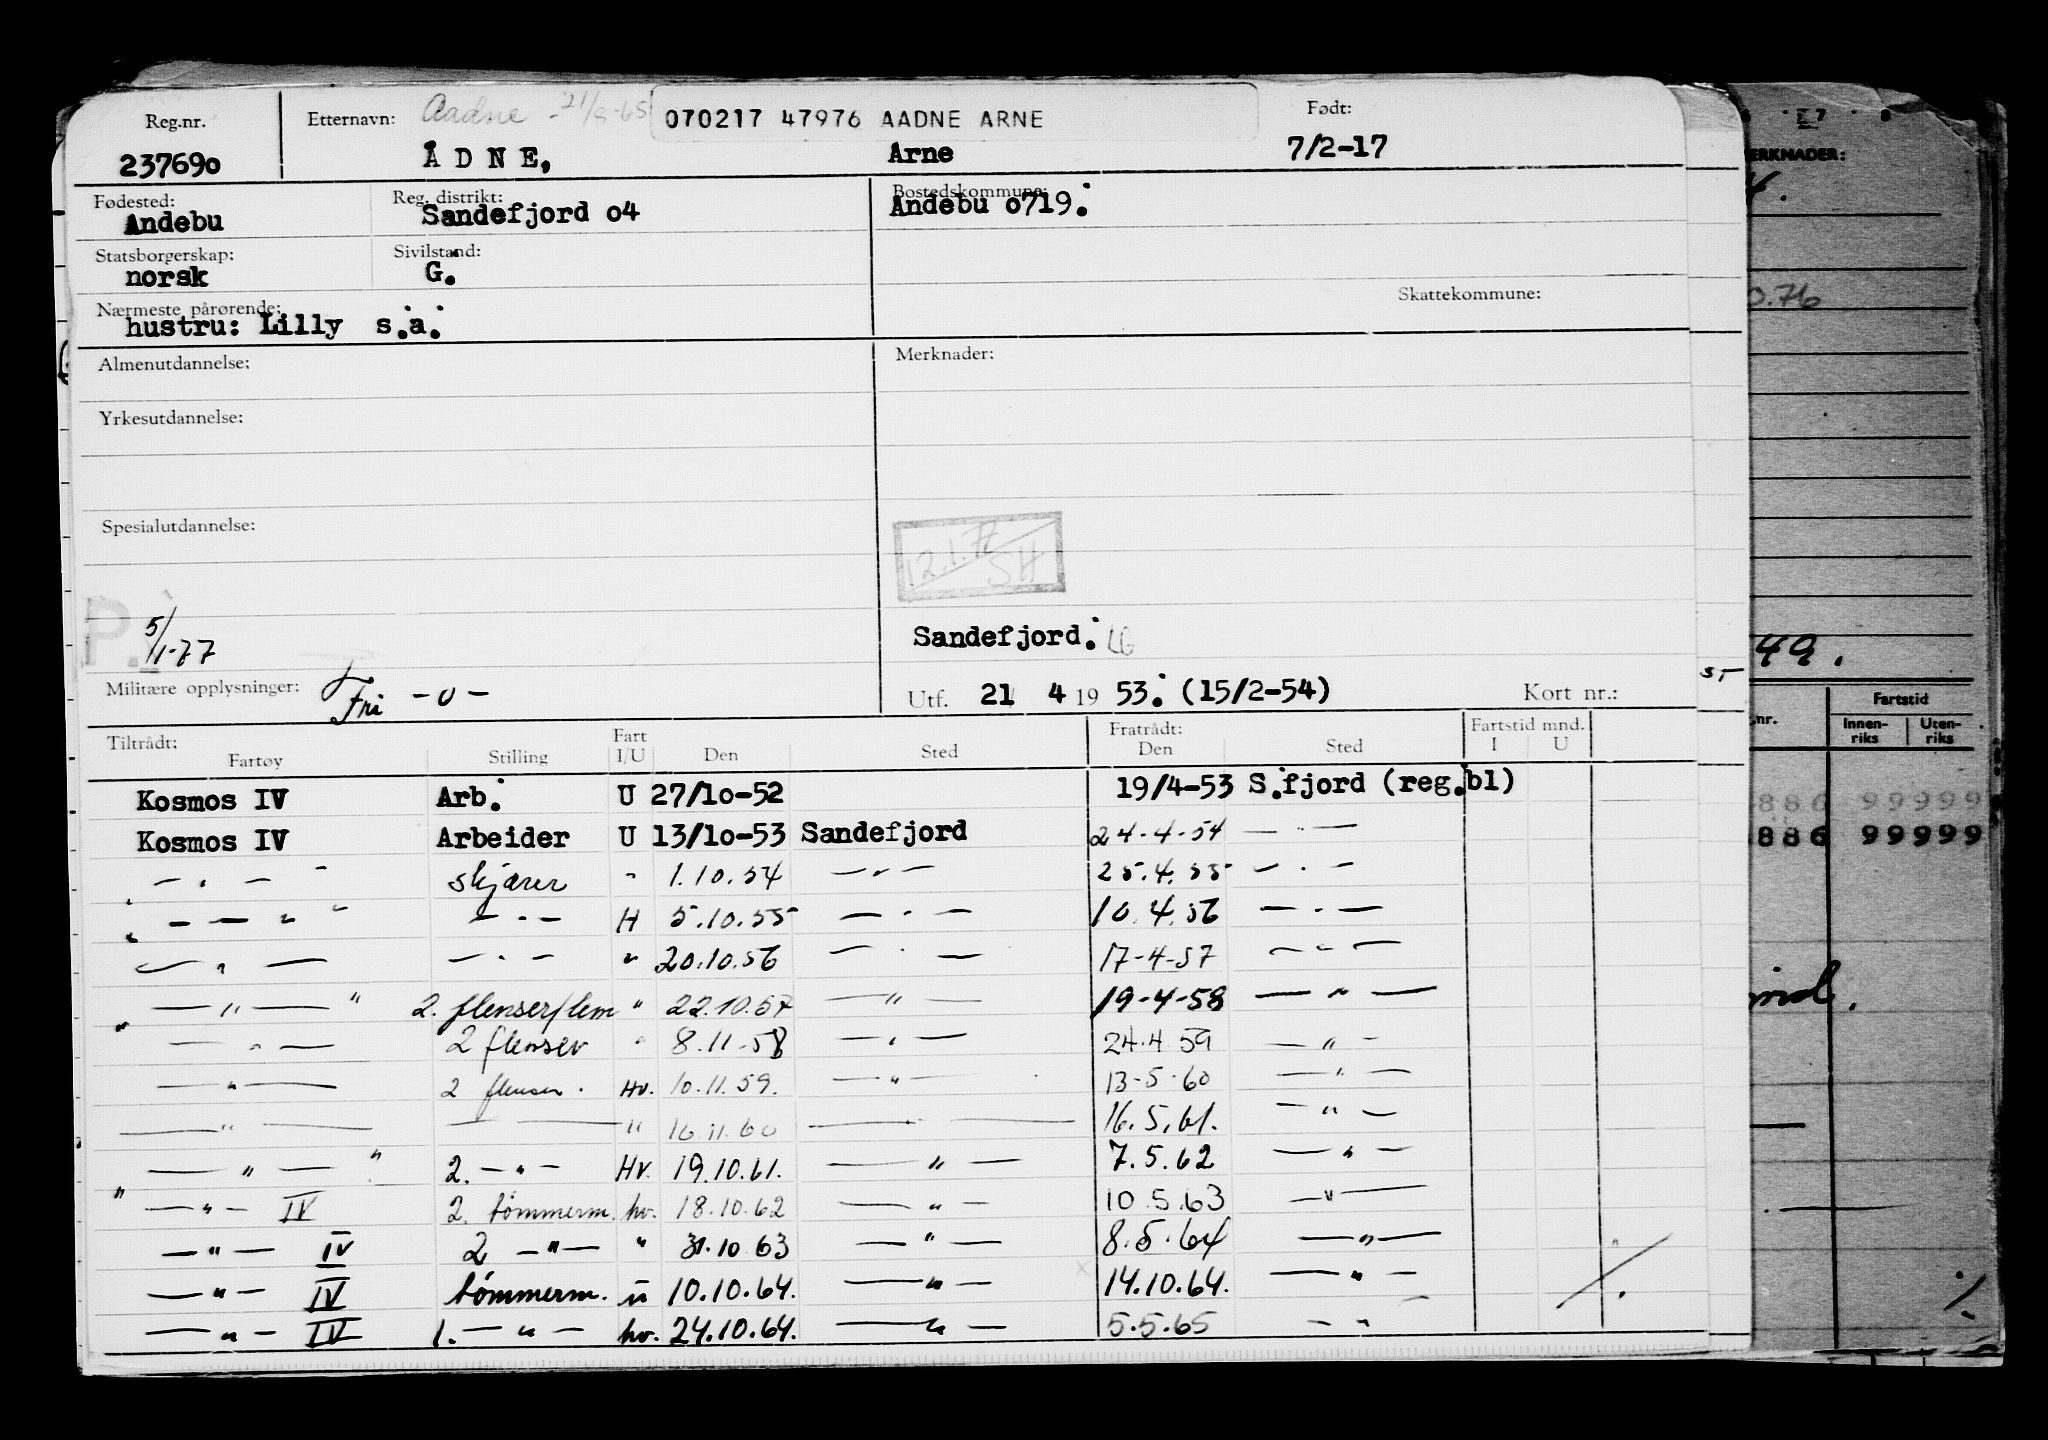 Reg.nr. Etternavn: Aadne - 21/8-65 070217 47976 AADNE ARNE Født:
237690 ÅDNE, Arne 7/2-17
Fødested: Reg. distrikt: Bostedskommune:
Andebu Sandefjord o4 Andebu o719.
Statsborgerskap: Sivilstand:
norsk G.
Skattekommune:
Nærmeste pårørende:
hustru: Lilly s.a.
Almenutdannelse: Merknader:
Yrkesutdannelse:
Spesialutdannelse:
12.1.77 SH
5/1-77
Sandefjord.
Militære opplysninger: Fri -o- Utf. 21 4 19 53. (15/2-54) Kort nr.:
Tiltrådt: Fart Fratrådt: Fartstid mnd.
Fartøy Stilling I/U Den Sted Den Sted I U
Kosmos IV Arb. U 27/1o-52 19/4-53 S.fjord (reg.bl)
Kosmos IV Arbeider U 13/1o-53 Sandefjord 24-4-54 — " —
— " — " skjærer " 1.10.54 — " — 25.4.55 — " —
" — — " " — " — H 5.10.55 — " — 10.4.56 — " —
— " — — " — " 20.10.56 — " — 17-4-57 — " —
— " — " 2. flenser/lem " 22.10.57 — " — 19-4-58 — " —
" — " — 2 flenser " 8.11-58 — " — 24.4 59 — " —
— " — 2 flenser. Hv. 10.11.59. — " — 13-5-60 — " —
— " — — " 16 11.60 — " — 16.5.61. — " —
— " — " 2. — " — Hv. 19.10.61. — " — 7.5.62 — " —
" — " — IV 2. tømmerm. hv. 18.10.62 — " — 10.5.63 — " —
— " — IV 2 — " — " 31.10 63 — " — 8.5.64 — " — "
— " — IV tømmerm. u 10.10.64. — " — 14.10.64. — " —
— " — IV 1. — " — hv. 24.10.64. — " — 5.5.65 — " —
ERKNADER:
0.76
49.
.nr. Fartstid
Innen-riks Uten-riks
886 99999
886 99999